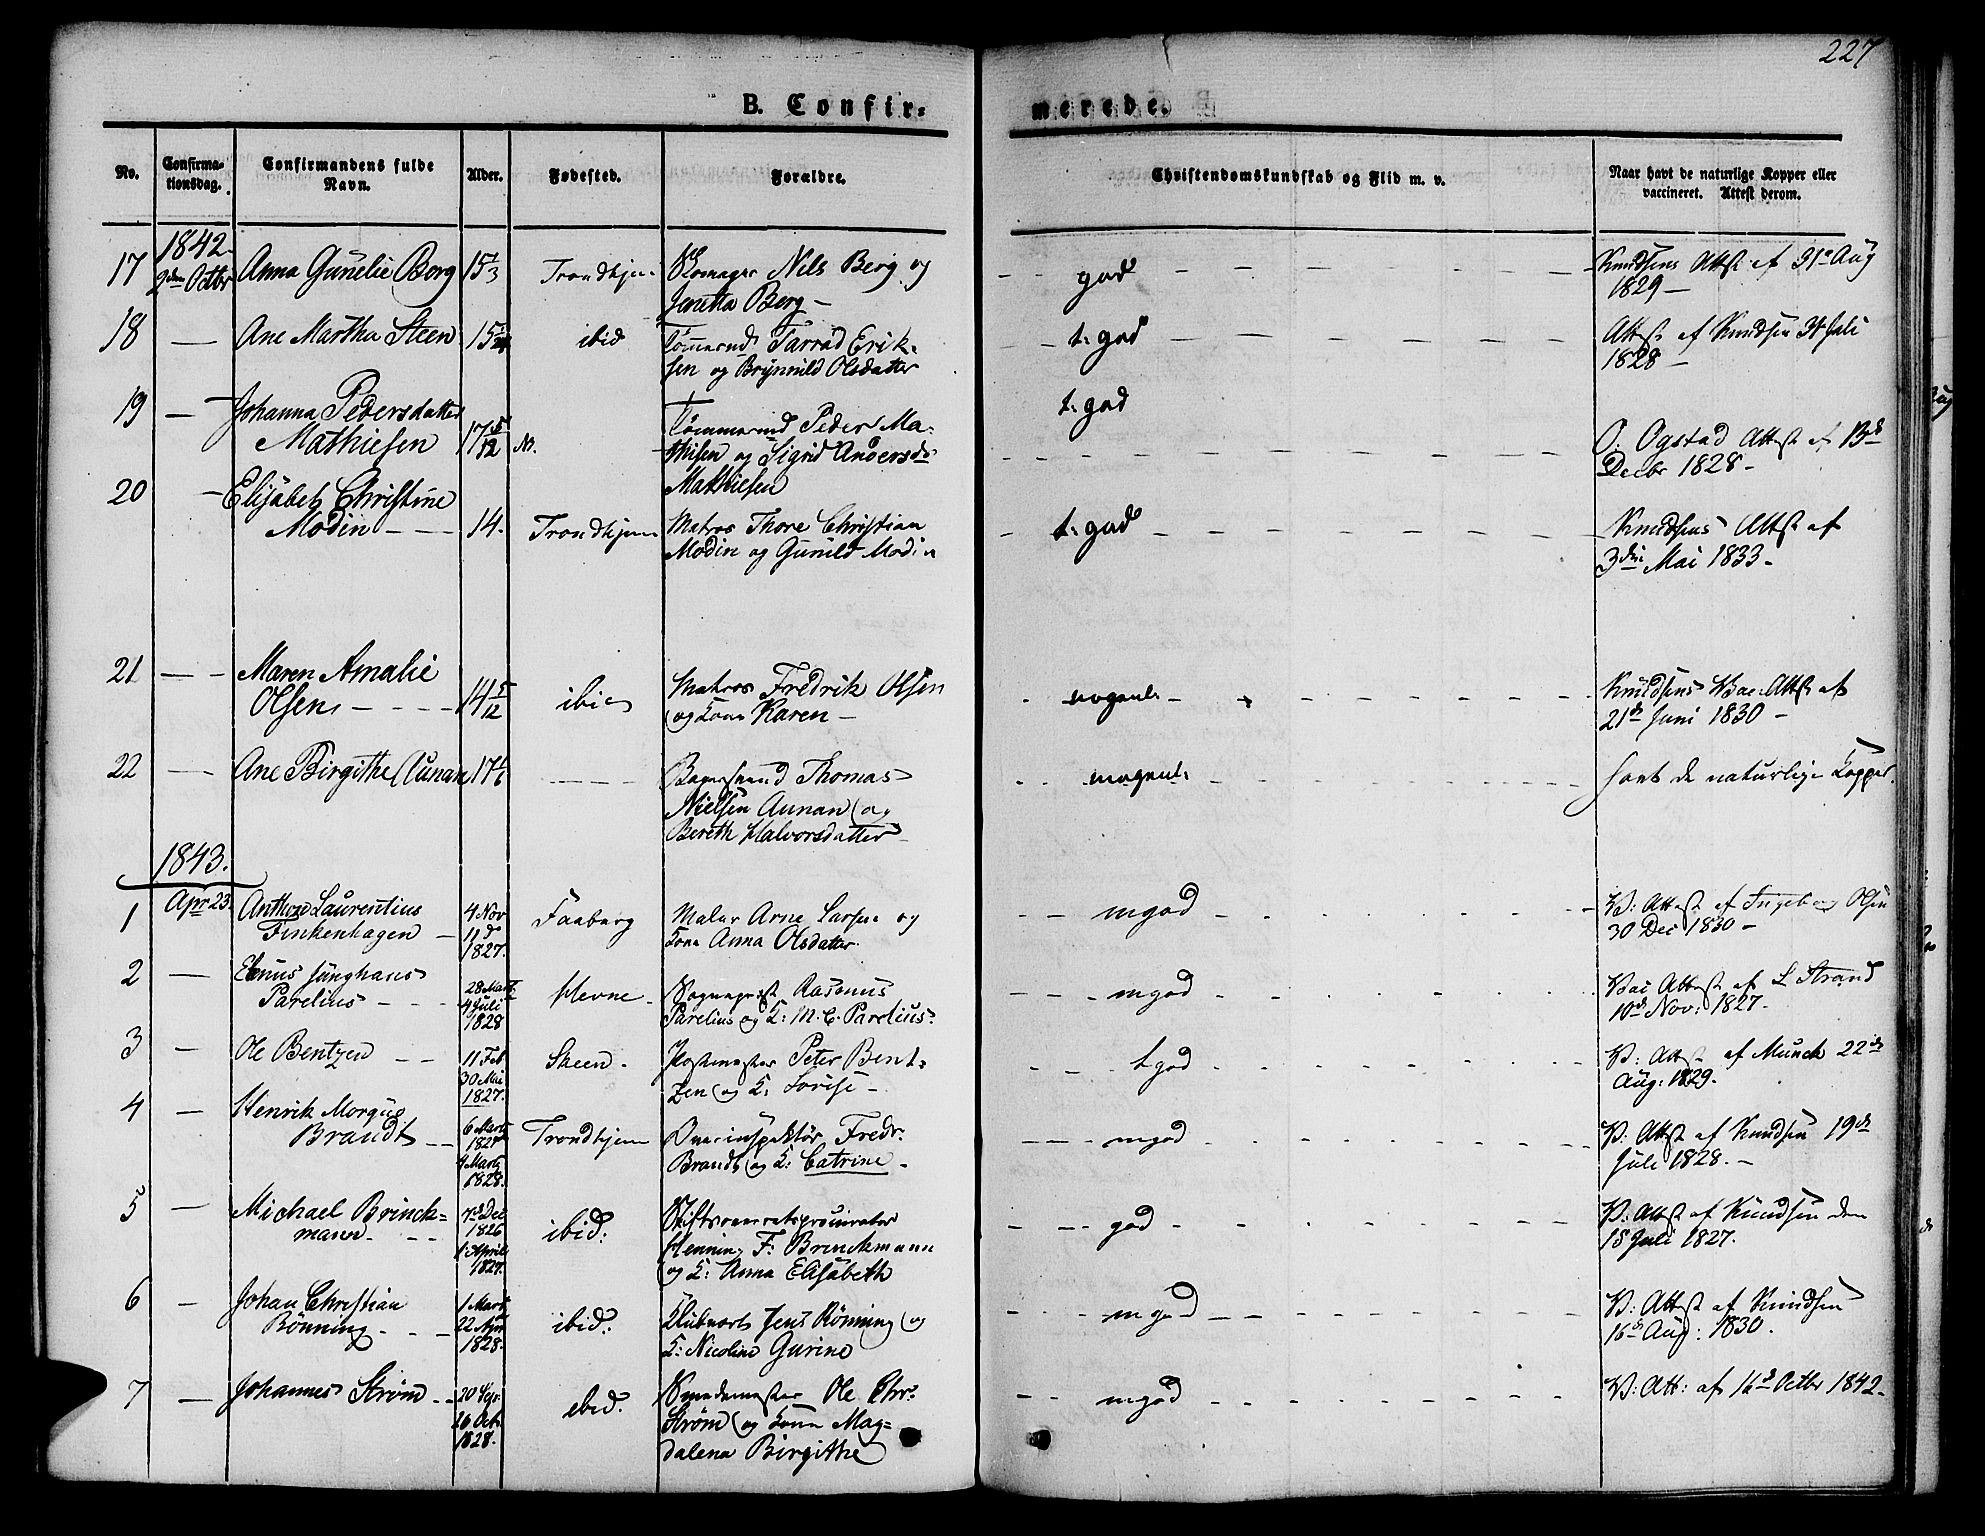 227
B. Confir=
merede.
No.
Confirma-
tionsdag.
Confirmandens fulde
Navn.
Alder.
Fødested.
Forældre.
Christendomskundskab og Flid m. v.
Naar havt de naturlige Kopper eller
vaccineret. Attest derom.
1842
17 2den Octbr Anna Gunelie Berg 15 Trondhjem Nils Berg og
Jenetta Berg –
god
Knudsens Attst af 31te Aug
1829 –
18 — Ane Martha Steen 15 ibid Tarrad Erik-
sen og Brynnild Olsdatter
t: god
Attst af Knudsen
1828 –
19 — Johanna Pedersdatter
Mathiesen 17 5/12 Peder Ma-
thisen og Sigrid Andersdr
Mathiesen
t: god
O. Ogstad Attst af 13de
Decbr 1828 –
20 — Elisabeth Christine
Modin 14. Trondhjem Matros Thore Christian
Modin og Gunild Modin
t: god
Knudsens Attst af
3die Mai 1833 –
21 — Maren Amalie
Olsen 14 5/12 ibid Matros Fredrik Olsen
og Kone Karen –
Knudsens Vac: Attst af
21de Juni 1830 –
22 — Ane Birgithe Aunan 17 1/6 Thomas
Nielsen Aunan og
Bereth Halvorsdatter
havt de naturlige Kopper.
1843.
1 Apr 23. Laurentius
Finkenhagen 4 Nov
11 do
1827. Faaberg Maler Arne Larsen og
Kone Anna Olsdatter.
mgod
V: Attest af Ingeborg Olsen
30 Dec 1830 –
2 — Junghans
Parelius 28 Marts
4 Juli
1828 Hevne Sogneprest Rasmus
Parelius og K: M. C. Parelius.
mgod
Vac Attest af L Strand
10de Nov: 1827.
3 — Ole Bentzen 11 Feb
30 Mai
1827. Skeen. Postmester Peter Bent-
zen og K: Lovise –
tgod
V: Attst af Munch 22de
Aug: 1829.
4 — Henrik Morgus
Brandt 6 Marts
4 Marts
1828. Trondhjem Fredr.
Brandt og K: Catrine.
mgod
V: Attst af Knudsen 19de
Juli 1828. –
5 — Michael Brinck=
mann Dec
1826
1 April
1827. ibid:
Henning F: Brinckmann
og K: Anna Elisabeth
god
V: Attst af Knudsen den
18 Juli 1827.
6 — Johan Christian
Rönning 1 Marts
22 Apr
1828. ibid: Jens Rönning og
K: Nicoline Gurine
mgod
V: Attst af Knudsen
16de Aug: 1830.
7 — Johannes Strøm 20 Sep.
26 Octb.
1828. ibid. Smedemester Ole Chr.
Strøm og Kone Mag=
dalena Birgithe
mgod
V: Att: af 16de Octbr 1842.